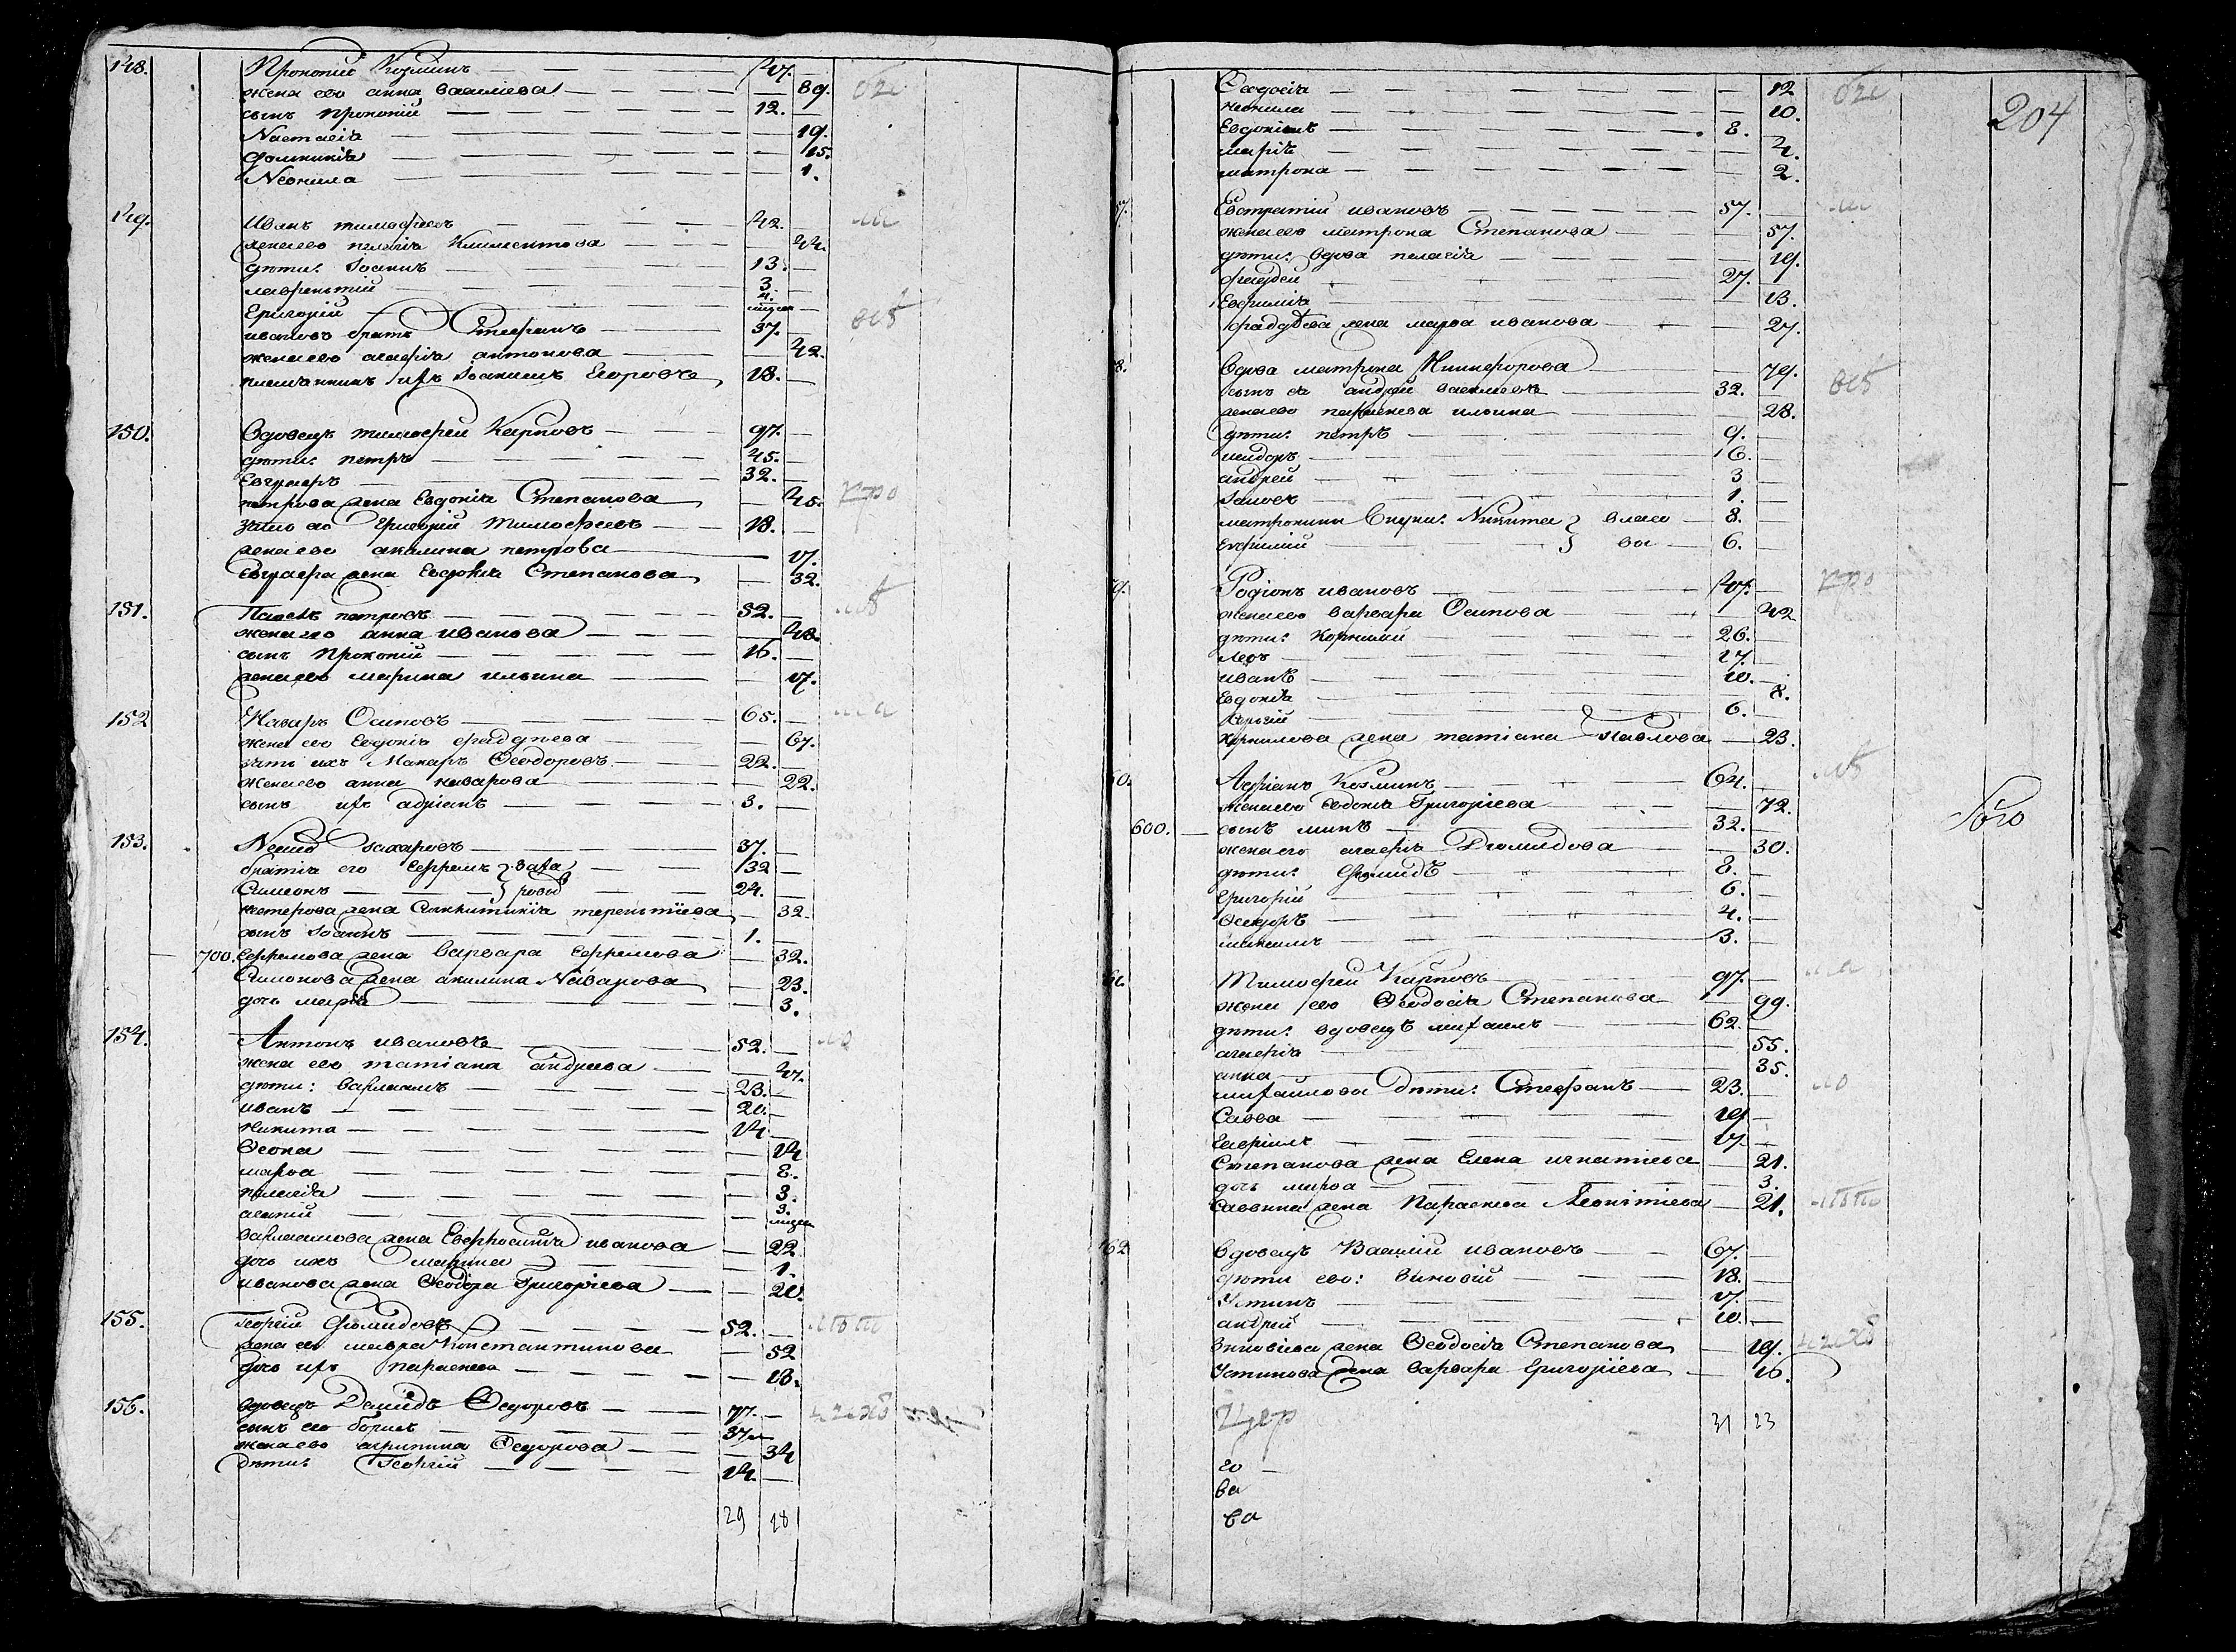 148. Прокопий Козминъ 47.
жена ево анна васильева 89.
сынъ Прокопий 12.
Настасїа 19.
Домникїа 15.
Неонила 1.
149. Иванъ тимофеевъ 42.
жена ево пелагїа Климентова 44.
дѣти: Іоаннъ 13.
лаврентий 3.
Григорий 4.
ивановъ братъ Стефанъ 37.
жена ево агафїа антонова 42.
племянникъ ихъ Іоакимъ Егоровъ 18.
150. Вдовецъ тимофей Карповъ 97.
дѣти: петръ 45.
Евграфъ 32.
петрова жена Евдокїа Степанова 45.
зять ево Григорий тимофеевъ 18.
жена ево акилина петрова 17.
Евграфа жена Евдокїа Степанова 32.
151. Павелъ петровъ 52.
жена его анна иванова 48.
сынъ Прокопий 16.
жена ево марина ильина 17.
152 Назаръ Осиповъ 65.
жена ево Евдокїа фаддѣева 67.
зять ихъ Макаръ Ѳеодоровъ 22.
жена ево анна назарова 22.
сынъ ихъ адрианъ 3.
153. захаровъ 37.
братїа его Ефремъ заха 32
Симеонъ ровы 24.
жена терентїева 32.
сынъ Іоаннъ 1.
700. Ефремова жена варвара Ефремова 32.
Симонова жена акилина Назарова 23.
дочь марїа 3.
154. Антонъ ивановъ 52.
жена ево татїана андреева 47.
дѣти: варлаамъ 23.
иванъ 20.
никита 14.
Ѳеона 14
марѳа 8.
пелагїа 3.
агапий 3.
варлаамова жена Евфросинїа иванова 22
дочь ихъ марина 1.
иванова жена Ѳеодора Григорїева 20.
155. Георгий Дїомидовъ 52.
жена ево мавра Константинова 52
дочь ихъ параскева 13.
156. вдовецъ Давидъ Ѳедоровъ 77.
сынъ его борисъ 37
жена ево агрипина Ѳедорова 34
Дѣти: Георгий 14.
29 28
204
Ѳеодосїа 12
неонила 10.
Евдокимъ 8.
марїа 4.
матрона 2.
7. Евстратий ивановъ 57.
жена ево матрона Степанова 57.
дѣти: вдова пелагїа 19.
фаддей 27.
Евфимїа 13.
фаддѣева жена марѳа иванова 27.
8. Вдова матрона Никифорова 79.
сынъ ея андрей васильевъ 32.
жена ево параскева ильина 28.
дѣти: петръ 9.
исидоръ 6.
андрей 3
Іаковъ 1.
матронини внуки: Никита власо 8.
Евфимий вы 6.
9. Родїонъ ивановъ 47.
жена ево варвара Осипова 42
дѣти: Корнилий 26.
левъ 17.
иванъ 10.
Евдокїа 8.
6.
корнилова жена татїана Павлова 23.
60. Адрїанъ Козминъ 64.
жена ево Евдокїа Григорїева 72.
600. сынъ минъ 32.
жена его агафїа Дїомидова 30.
дѣти: Дїомидъ 8.
Григорий 6.
Ѳедоръ 4.
максимъ 3.
61. Тимофей Карповъ 97.
жена ево Ѳеодосїа Степанова 99.
дѣти: вдовецъ михаилъ 62.
агафїа 55.
анна 35.
михаилова Дѣти: Стефанъ 23.
Савва 19
Гавриилъ 17.
Степанова жена Елена игнатїева 21.
дочь марѳа 3.
Саввина жена Параскева Леонтїева 21.
162 вдовецъ Василий ивановъ 67.
дѣти ево: Зиновий 18.
Устинъ 17.
андрей 10.
Зиновїева жена Ѳеодосїа Степанова 19.
Устинова жена варвара Григорїева 16.
31 23
го
ва
ва